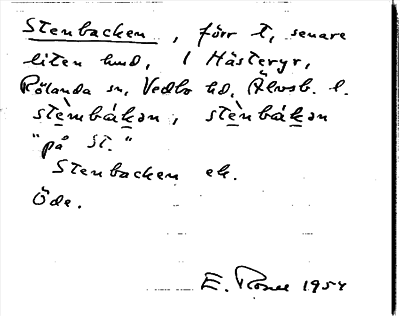 Stenbacken, förr t, senare
liten lund, i Hästeryr,
Rölanda sn, Vedbo hd, Älvsb. l.
stèmbákən, stènbákən
"på St."
Stenbacken ek.
Öde.
E. 1954